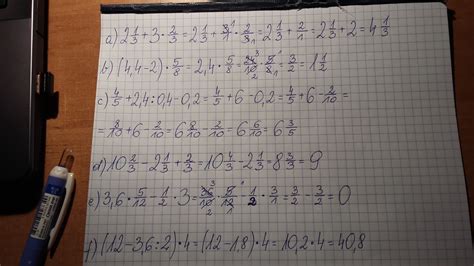 a) 2 1/3 + 3 · 2/3 = 2 1/3 + 3/1 · 2/3 = 2 1/3 + 2/1 = 2 1/3 + 2 = 4 1/3
b) (4,4-2) · 5/8 = 2,4 · 5/8 = 24/10 · 5/8 = 3/2 = 1 1/2
c) 4/5 + 2,4 : 0,4 - 0,2 = 4/5 + 6 - 0,2 = 4/5 + 6 - 2/10 =
= 8/10 + 6 - 2/10 = 6 8/10 - 2/10 = 6 6/10 = 6 3/5
d) 10 2/3 - 2 1/3 + 2/3 = 10 4/3 - 2 1/3 = 8 3/3 = 9
e) 3,6 · 5/12 - 1/2 · 3 = 36/10 · 5/12 · 1/2 · 3/1 = 3/2 - 3/2 = 0
f) (12 - 3,6 : 2) · 4 = (12 - 1,8) · 4 = 10,2 · 4 = 40,8